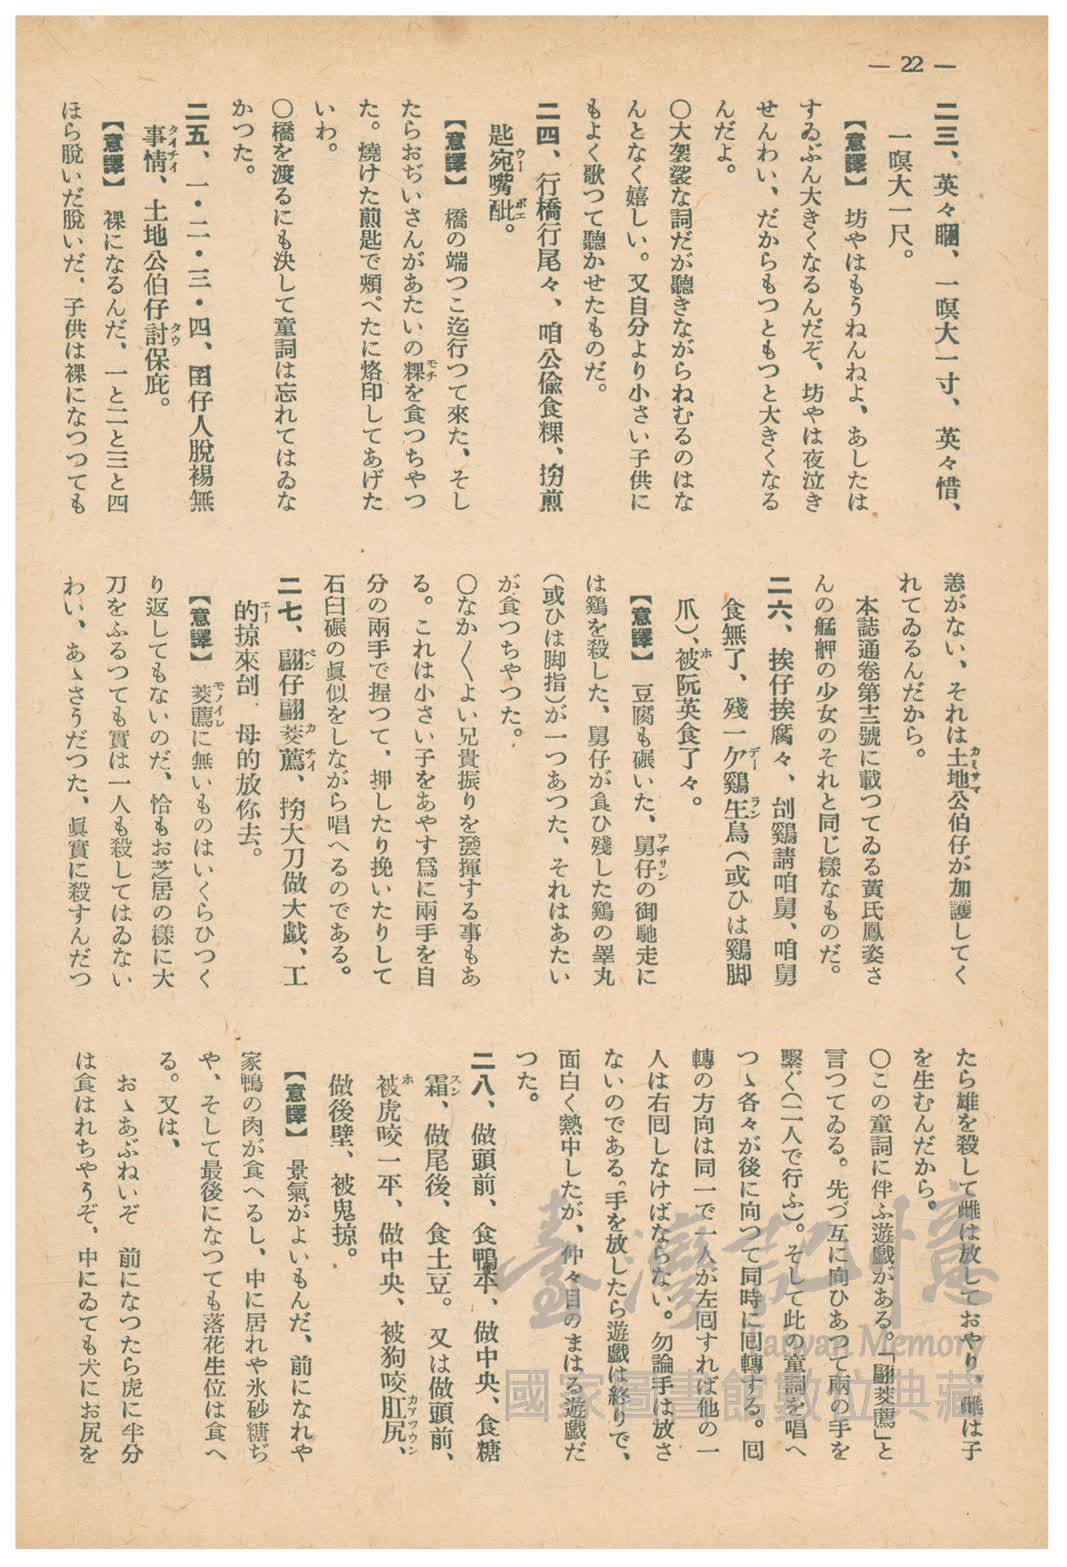 — 22 —
二三、英々睏、一暝大一寸、英々惜、
一暝大一尺。
【意譯】　坊やはもうねんねよ、あしたは
すゐぶん大きくなるんだぞ、坊やは夜泣き
せんわい、だからもつともつと大きくなる
んだよ。
〇大袈裟な詞だが聽きながらねむるのはな
んとなく嬉しい。又自分より小さい子供に
もよく歌つて聽かせたものだ。
二四、行橋行尾々、咱公偸食粿、挵煎
匙宛嘴䶩。
【意譯】　橋の端つこ迄行つて來た、そし
たらおぢいさんがあたいの粿を食つちやつ
た。燒けた煎匙で頰ぺたに烙印してあげた
いわ。
〇橋を渡るにも決して童詞は忘れてはゐな
かつた。
二五、一・二・三・四、囝仔人脫裼無
事情、土地公伯仔討保庇。
【意譯】　裸になるんだ、一と二と三と四
ほら脫いだ脫いだ、子供は裸になつつても
恙がない、それは土地公伯仔が加護してく
れてゐるんだから。
本誌通卷第十二號に載つてゐる黃氏鳳姿さ
んの艋舺の少女のそれと同じ樣なものだ。
二六、挨仔挨腐々、刣鷄請咱舅、咱舅
食無了、殘一个鷄生鳥（或ひは鷄脚
爪）、被阮英食了々。
【意譯】　豆腐も碾いた、舅仔の御馳走に
は鷄を殺した、舅仔が食ひ殘した鷄の睪丸
（或ひは脚指）が一つあつた、それはあたい
が食つちやつた。
〇なか〱よい兄貴振りを發揮する事もあ
る。これは小さい子をあやす爲に兩手を自
分の兩手で握つて、押したり挽いたりして
石臼碾の眞似をしながら唱へるのである。
二七、翩仔翩茭薦、挵大刀做大戲、工
的掠來刣、母的放你去。
【意譯】　茭薦に無いものはいくらひつく
り返してもないのだ、恰もお芝居の樣に大
刀をふるつても實は一人も殺してはゐない
わい、あゝさうだつた、眞實に殺すんだつ
たら雄を殺して雌は放しておやり、雌は子
を生むんだから。
〇この童詞に伴ふ遊戲がある。「翩茭薦」と
言つてゐる。先づ互に向ひあつて兩の手を
繫ぐ（二人で行ふ）。そして此の童詞を唱へ
つゝ各々が後に向つて同時に囘轉する。囘
轉の方向は同一で一人が左囘すれば他の一
人は右囘しなけばならない。勿論手は放さ
ないのである。手を放したら遊戲は終りで、
面白く熱中したが、仲々目のまはる遊戲だ
つた。
二八、做頭前、食鴨平、做中央、食糖
霜、做尾後、食土豆。又は做頭前、
被虎咬一平、做中央、被狗咬肛尻、
做後壁、被鬼掠。
【意譯】　景氣がよいもんだ、前になれや
家鴨の肉が食へるし、中に居れや氷砂糖ぢ
や、そして最後になつても落花生位は食へ
る。又は、
おゝあぶねいぞ　前になつたら虎に半分
は食はれちやうぞ、中にゐても犬にお尻を
臺灣記憶
Taiwan Memory
國家圖書館數位典藏